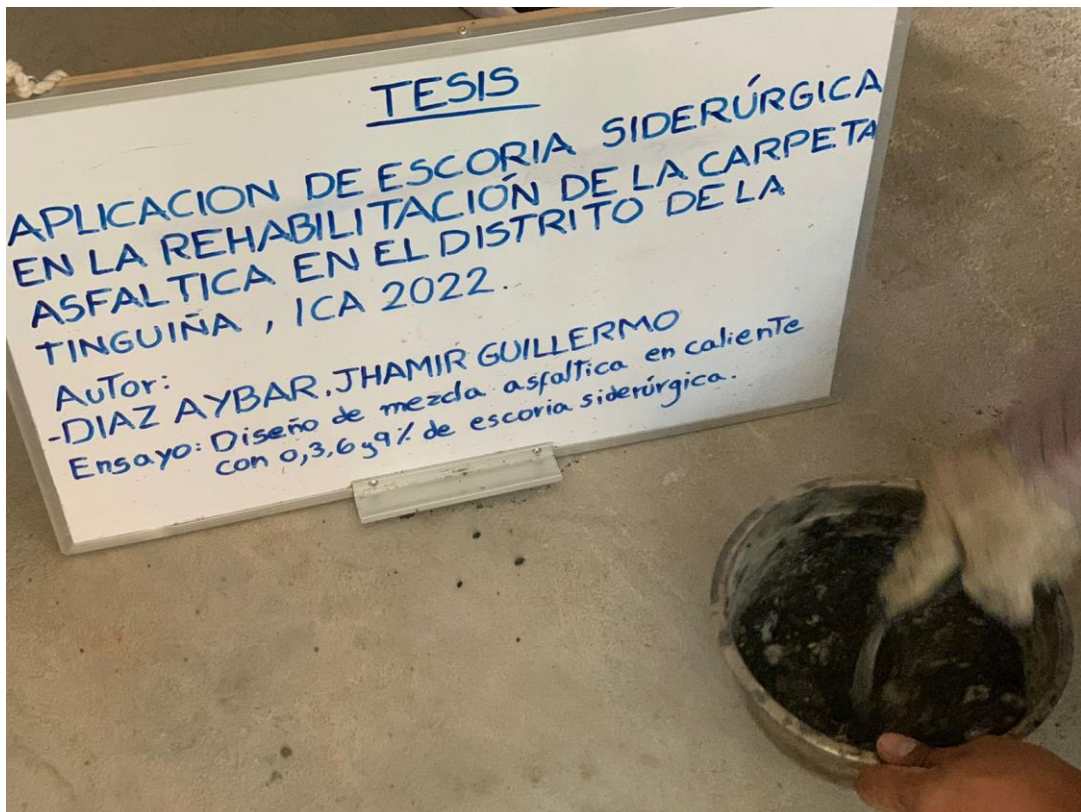 TESIS
APLICACION DE ESCORIA SIDERÚRGICA
EN LA REHABILITACIÓN DE LA CARPETA
ASFALTICA EN EL DISTRITO DE LA
TINGUIÑA, ICA 2022.
Autor:
-DIAZ AYBAR, JHAMIR GUILLERMO
Ensayo: Diseño de mezcla asfaltica en caliente
con 0,3,6 y 9% de escoria siderúrgica.